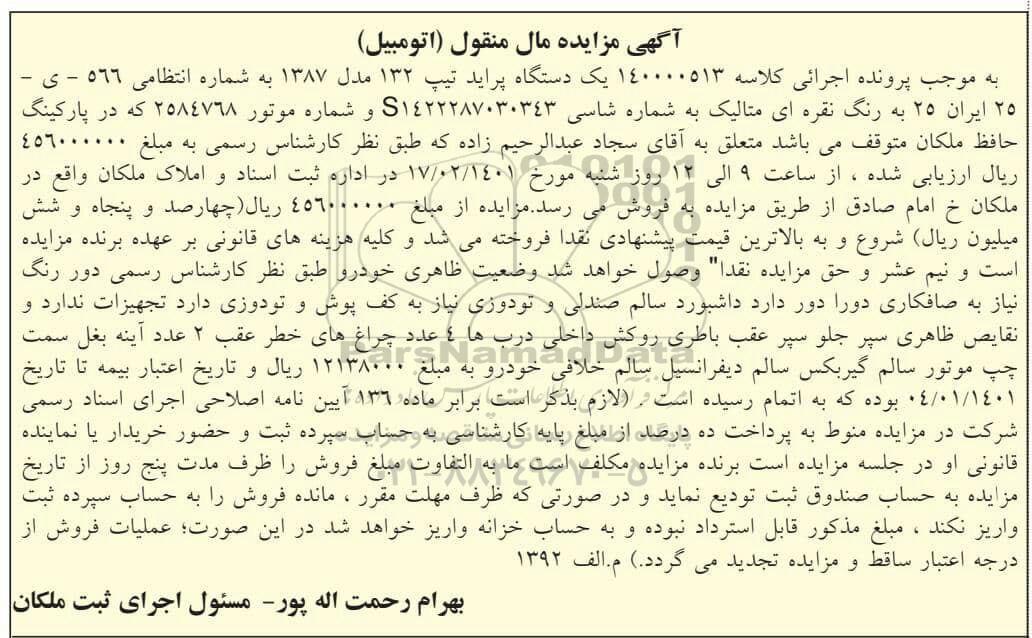 آگهی مزایده مال منقول (اتومبیل)
به موجب پرونده اجرائی کلاسه ۱۴۰۰۰۰۵۱۳ یک دستگاه پراید تیپ ۱۳۲ مدل ۱۳۸۷ به شماره انتظامی ۵۶۶ - ی -
۲۵ ایران ۲۵ به رنگ نقره ای متالیک به شماره شاسی S۱۴۲۲۲۸۷۰۳۰۳۴۳ و شماره موتور ۲۵۸۴۷۶۸ که در پارکینگ
حافظ ملکان متوقف می باشد متعلق به آقای سجاد عبدالرحیم زاده که طبق نظر کارشناس رسمی به مبلغ ۴۵۶۰۰۰۰۰۰
ریال ارزیابی شده ، از ساعت ۹ الی ۱۲ روز شنبه مورخ ۱۷/۰۲/۱۴۰۱ در اداره ثبت اسناد و املاک ملکان واقع در
ملکان خ امام صادق از طریق مزایده به فروش می رسد.مزایده از مبلغ ۴۵۶۰۰۰۰۰۰ ریال(چهارصد و پنجاه و شش
میلیون ریال) شروع و به بالاترین قیمت پیشنهادی نقدا فروخته می شد و کلیه هزینه های قانونی بر عهده برنده مزایده
است و نیم عشر و حق مزایده نقدا" وصول خواهد شد وضعیت ظاهری خودرو طبق نظر کارشناس رسمی دور رنگ
نیاز به صافکاری دورا دور دارد داشبورد سالم صندلی و تودوزی نیاز به کف پوش و تودوزی دارد تجهیزات ندارد و
نقایص ظاهری سپر جلو سپر عقب باطری روکش داخلی درب ها ۴ عدد چراغ های خطر عقب ۲ عدد آینه بغل سمت
چپ موتور سالم گیربکس سالم دیفرانسیل سالم خلافی خودرو به مبلغ ۱۲۱۳۸۰۰۰ ریال و تاریخ اعتبار بیمه تا تاریخ
۰۴/۰۱/۱۴۰۱ بوده که به اتمام رسیده است . (لازم بذکر است برابر ماده ۱۳۶ آیین نامه اصلاحی اجرای اسناد رسمی
شرکت در مزایده منوط به پرداخت ده درصد از مبلغ پایه کارشناسی به حساب سپرده ثبت و حضور خریدار یا نماینده
قانونی او در جلسه مزایده است برنده مزایده مکلف است ما به التفاوت مبلغ فروش را ظرف مدت پنج روز از تاریخ
مزایده به حساب صندوق ثبت تودیع نماید و در صورتی که ظرف مهلت مقرر ، مانده فروش را به حساب سپرده ثبت
واریز نکند ، مبلغ مذکور قابل استرداد نبوده و به حساب خزانه واریز خواهد شد در این صورت؛ عملیات فروش از
درجه اعتبار ساقط و مزایده تجدید می گردد.) م.الف ۱۳۹۲
بهرام رحمت اله پور- مسئول اجرای ثبت ملکان
ParsNamadData
۰۲۱-۸۸۳۴۹۶۷۰-۵